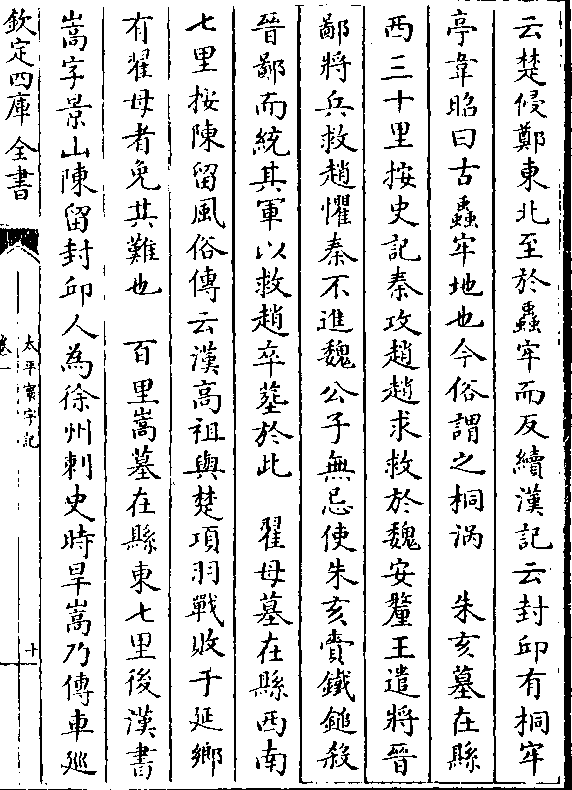 云楚侵鄭東北至於蟲牢而反續漢記云封邱有桐牢
亭韋昭曰古蟲牢地也今俗謂之桐涡　朱亥墓在縣
西三十里按史記秦攻趙趙求救於魏安釐王遣將晉
鄙將兵救趙懼秦不進魏公子無忌使朱亥賷鐵鎚殺
晉鄙而統其軍以救趙卒塟於此　翟母墓在縣西南
七里按陳留風俗傳云漢高祖與楚項羽戰敗于延鄉
有翟母者免其難也　百里嵩墓在縣東七里後漢書
嵩字景山陳留封邱人為徐州刺史時旱嵩乃傳車廵
欽定四庫全書
太平寰宇記
卷一
十